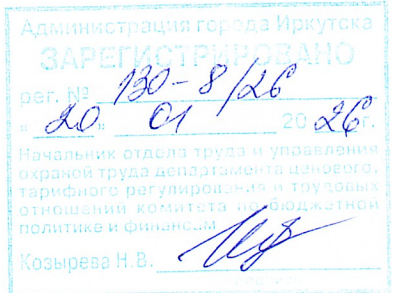 Администрация города Иркутска
ЗАРЕГИСТРИРОВАНО
рег. № 130-8/26
"20" 01 2026г.
Начальник отдела труда и управления
охраной труда департамента ценового,
тарифного регулирования и трудовых
отношений комитета по бюджетной
политике и финансам
Козырева Н.В.